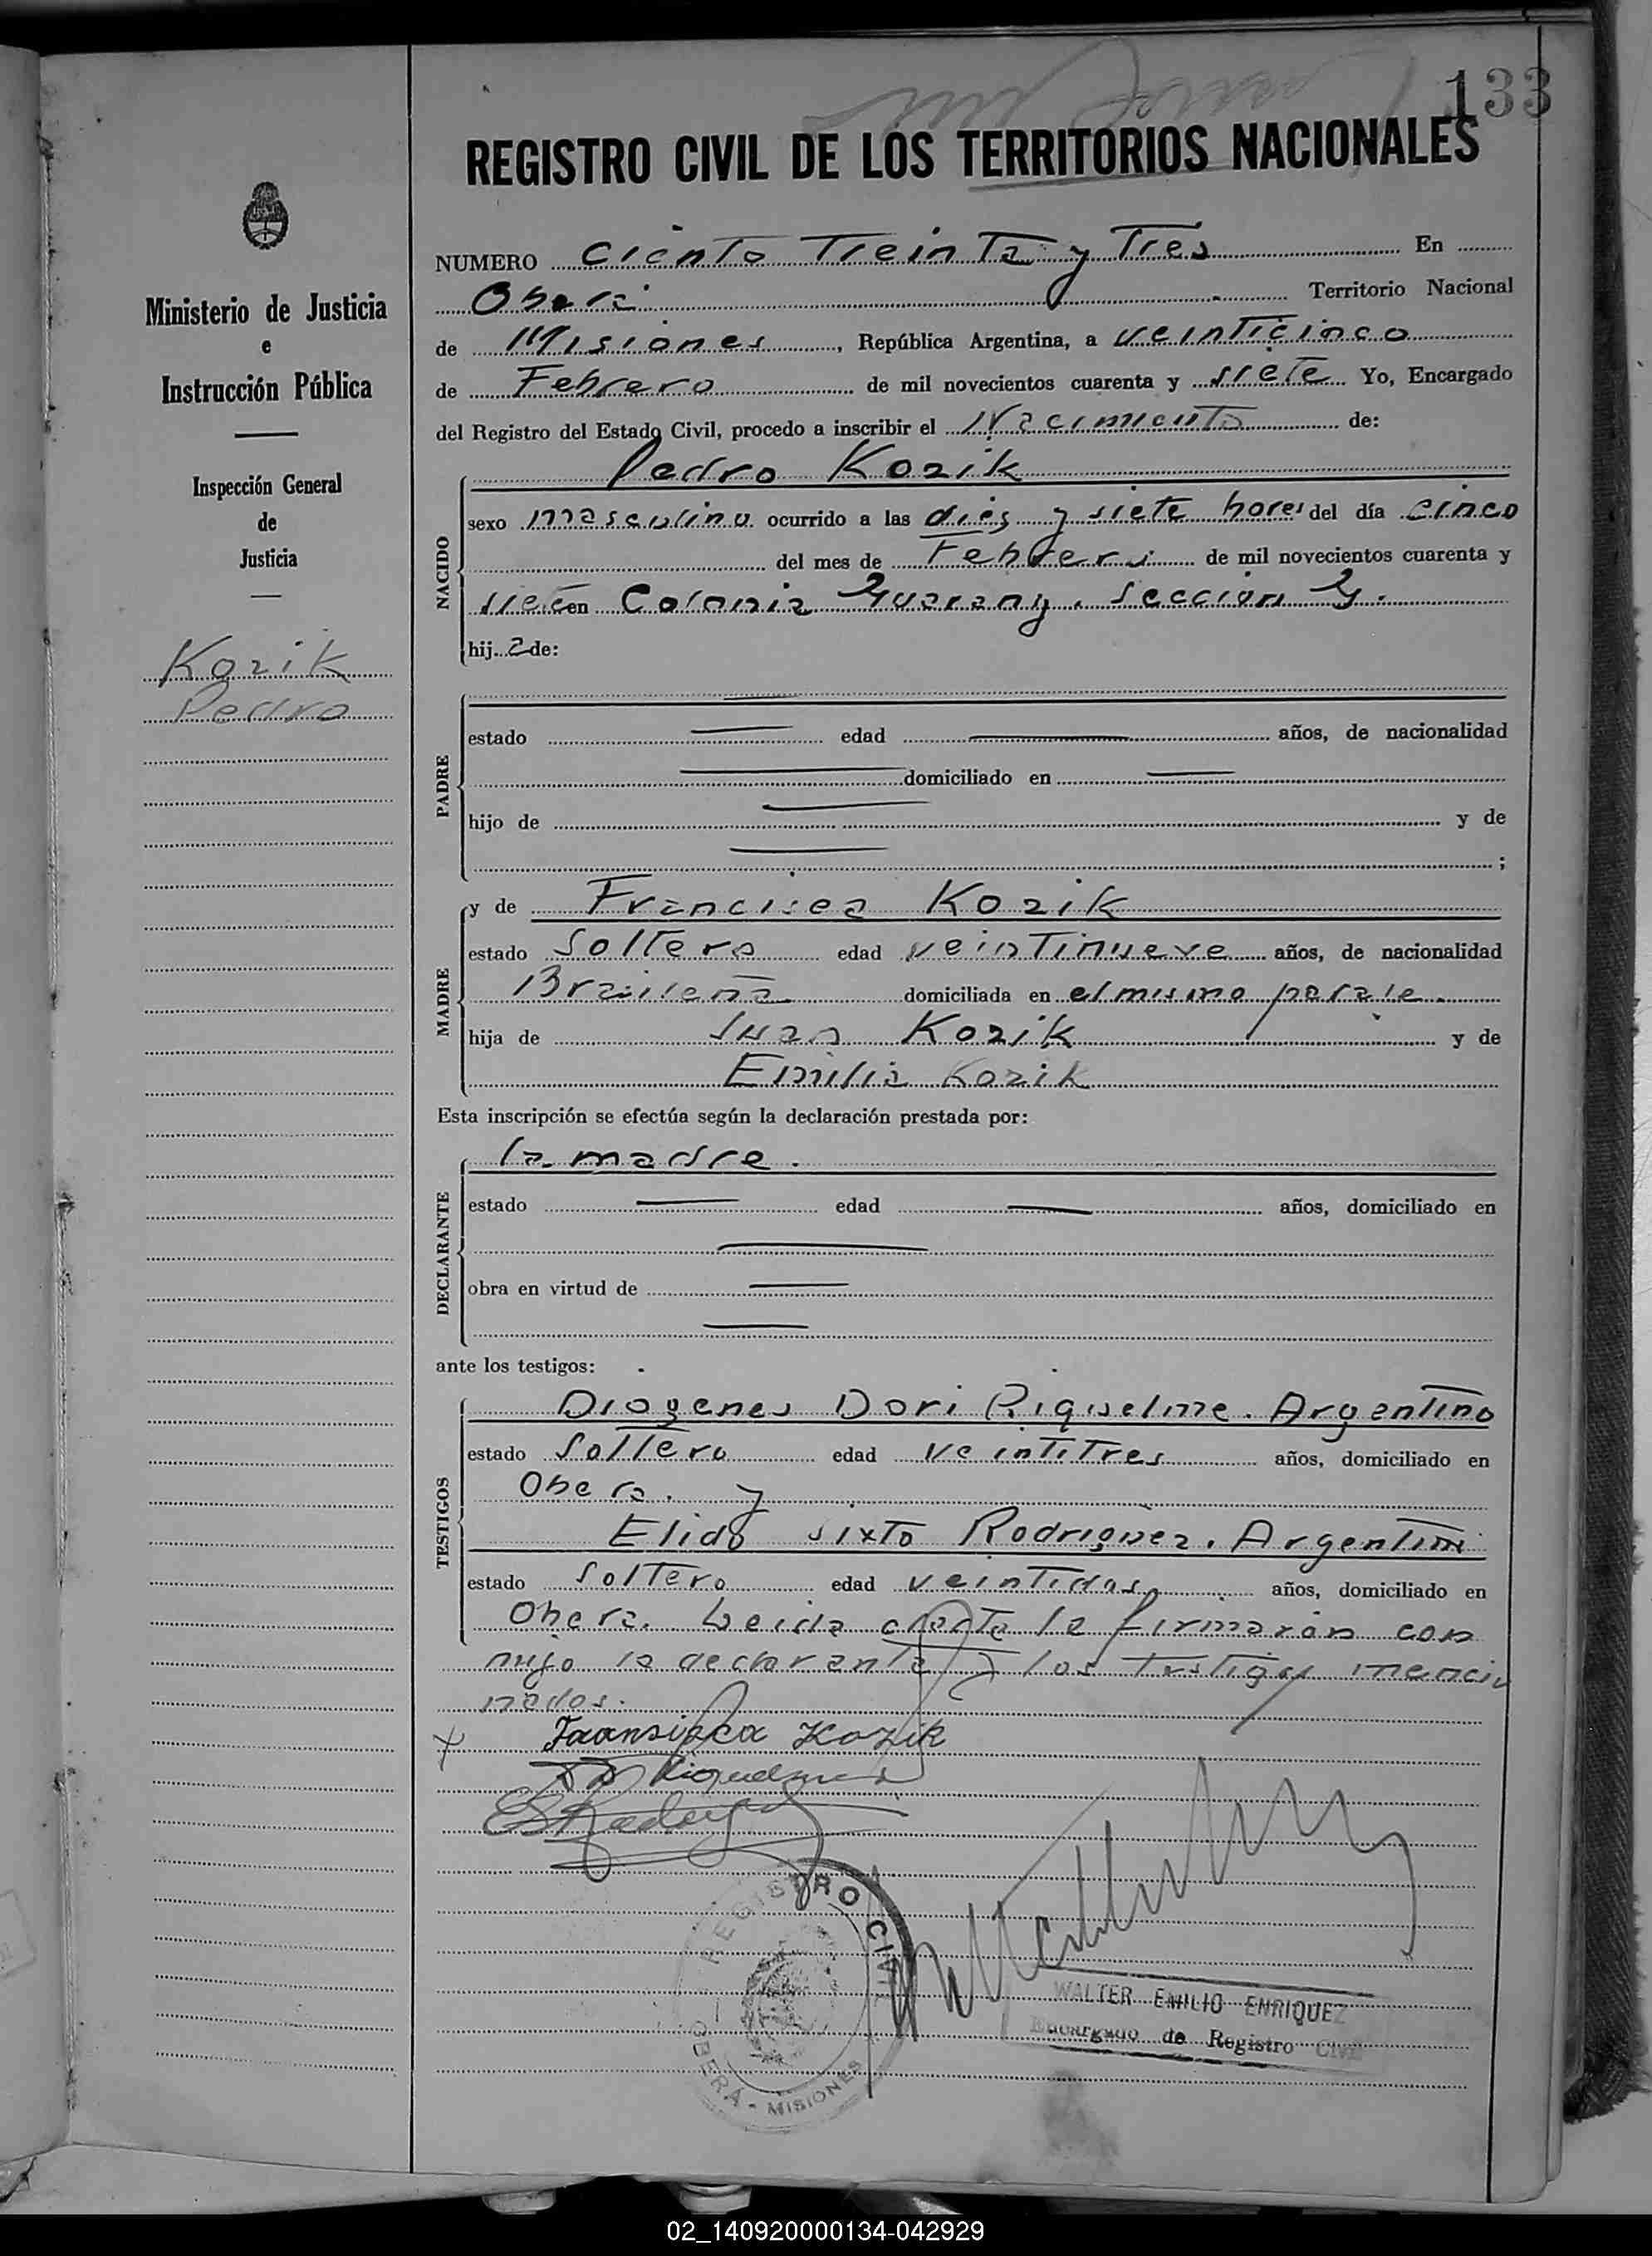 133
REGISTRO CIVIL DE LOS TERRITORIOS NACIONALES
Ministerio de Justicia
e
Instrucción Pública
Inspección General
de
Justicia
Kozik
Pedro
NUMERO Ciento Treinta y Tres En
Oberá Territorio Nacional
de Misiones, República Argentina, a veinticinco
de Febrero de mil novecientos cuarenta y siete Yo, Encargado
del Registro del Estado Civil, procedo a inscribir el Nacimiento de:
NACIDO
Pedro Kozik
sexo masculino ocurrido a las dies y siete horas del día cinco
del mes de Febrero de mil novecientos cuarenta y
siete en Colonia Guarany. Sección
hij de:
PADRE
estado edad años, de nacionalidad
domiciliado en
hijo de y de
;
MADRE
y de Francisca Kozik
estado Soltera edad veintinueve años, de nacionalidad
Brasileña domiciliada en el mismo paraje.
hija de Juan Kozik y de
Emilia Kozik
Esta inscripción se efectúa según la declaración prestada por:
DECLARANTE
la madre.
estado edad años, domiciliado en
obra en virtud de
ante los testigos:
TESTIGOS
Diogenes Dori Riquelme. Argentino
estado Soltero edad veintitres años, domiciliado en
Obera. y
Elido sixto Rodriguez. Argentino
estado Soltero edad veintidos, años, domiciliado en
Obera. Leida el acta la firmaron con
migo la declarante y los testigos mencio
nados.
x Fransiska Kozik
Riquelme
REGISTRO CIVIL
OBERÁ - MISIONES
WALTER EMILIO ENRIQUEZ
Encargado de Registro Civil
02_140920000134-042929